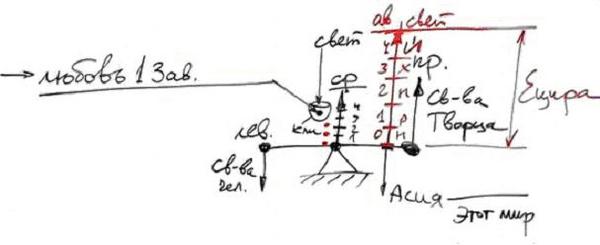 ав свет
свет
→ любовь 1 Зав.
ср
4 Й
3 Х
2 П
1 Р
0 Н
4
3
2
1
пр.
Св-ва
Творца
Ецира
кли
лев.
св-ва
чел.
Асия
Этот мир